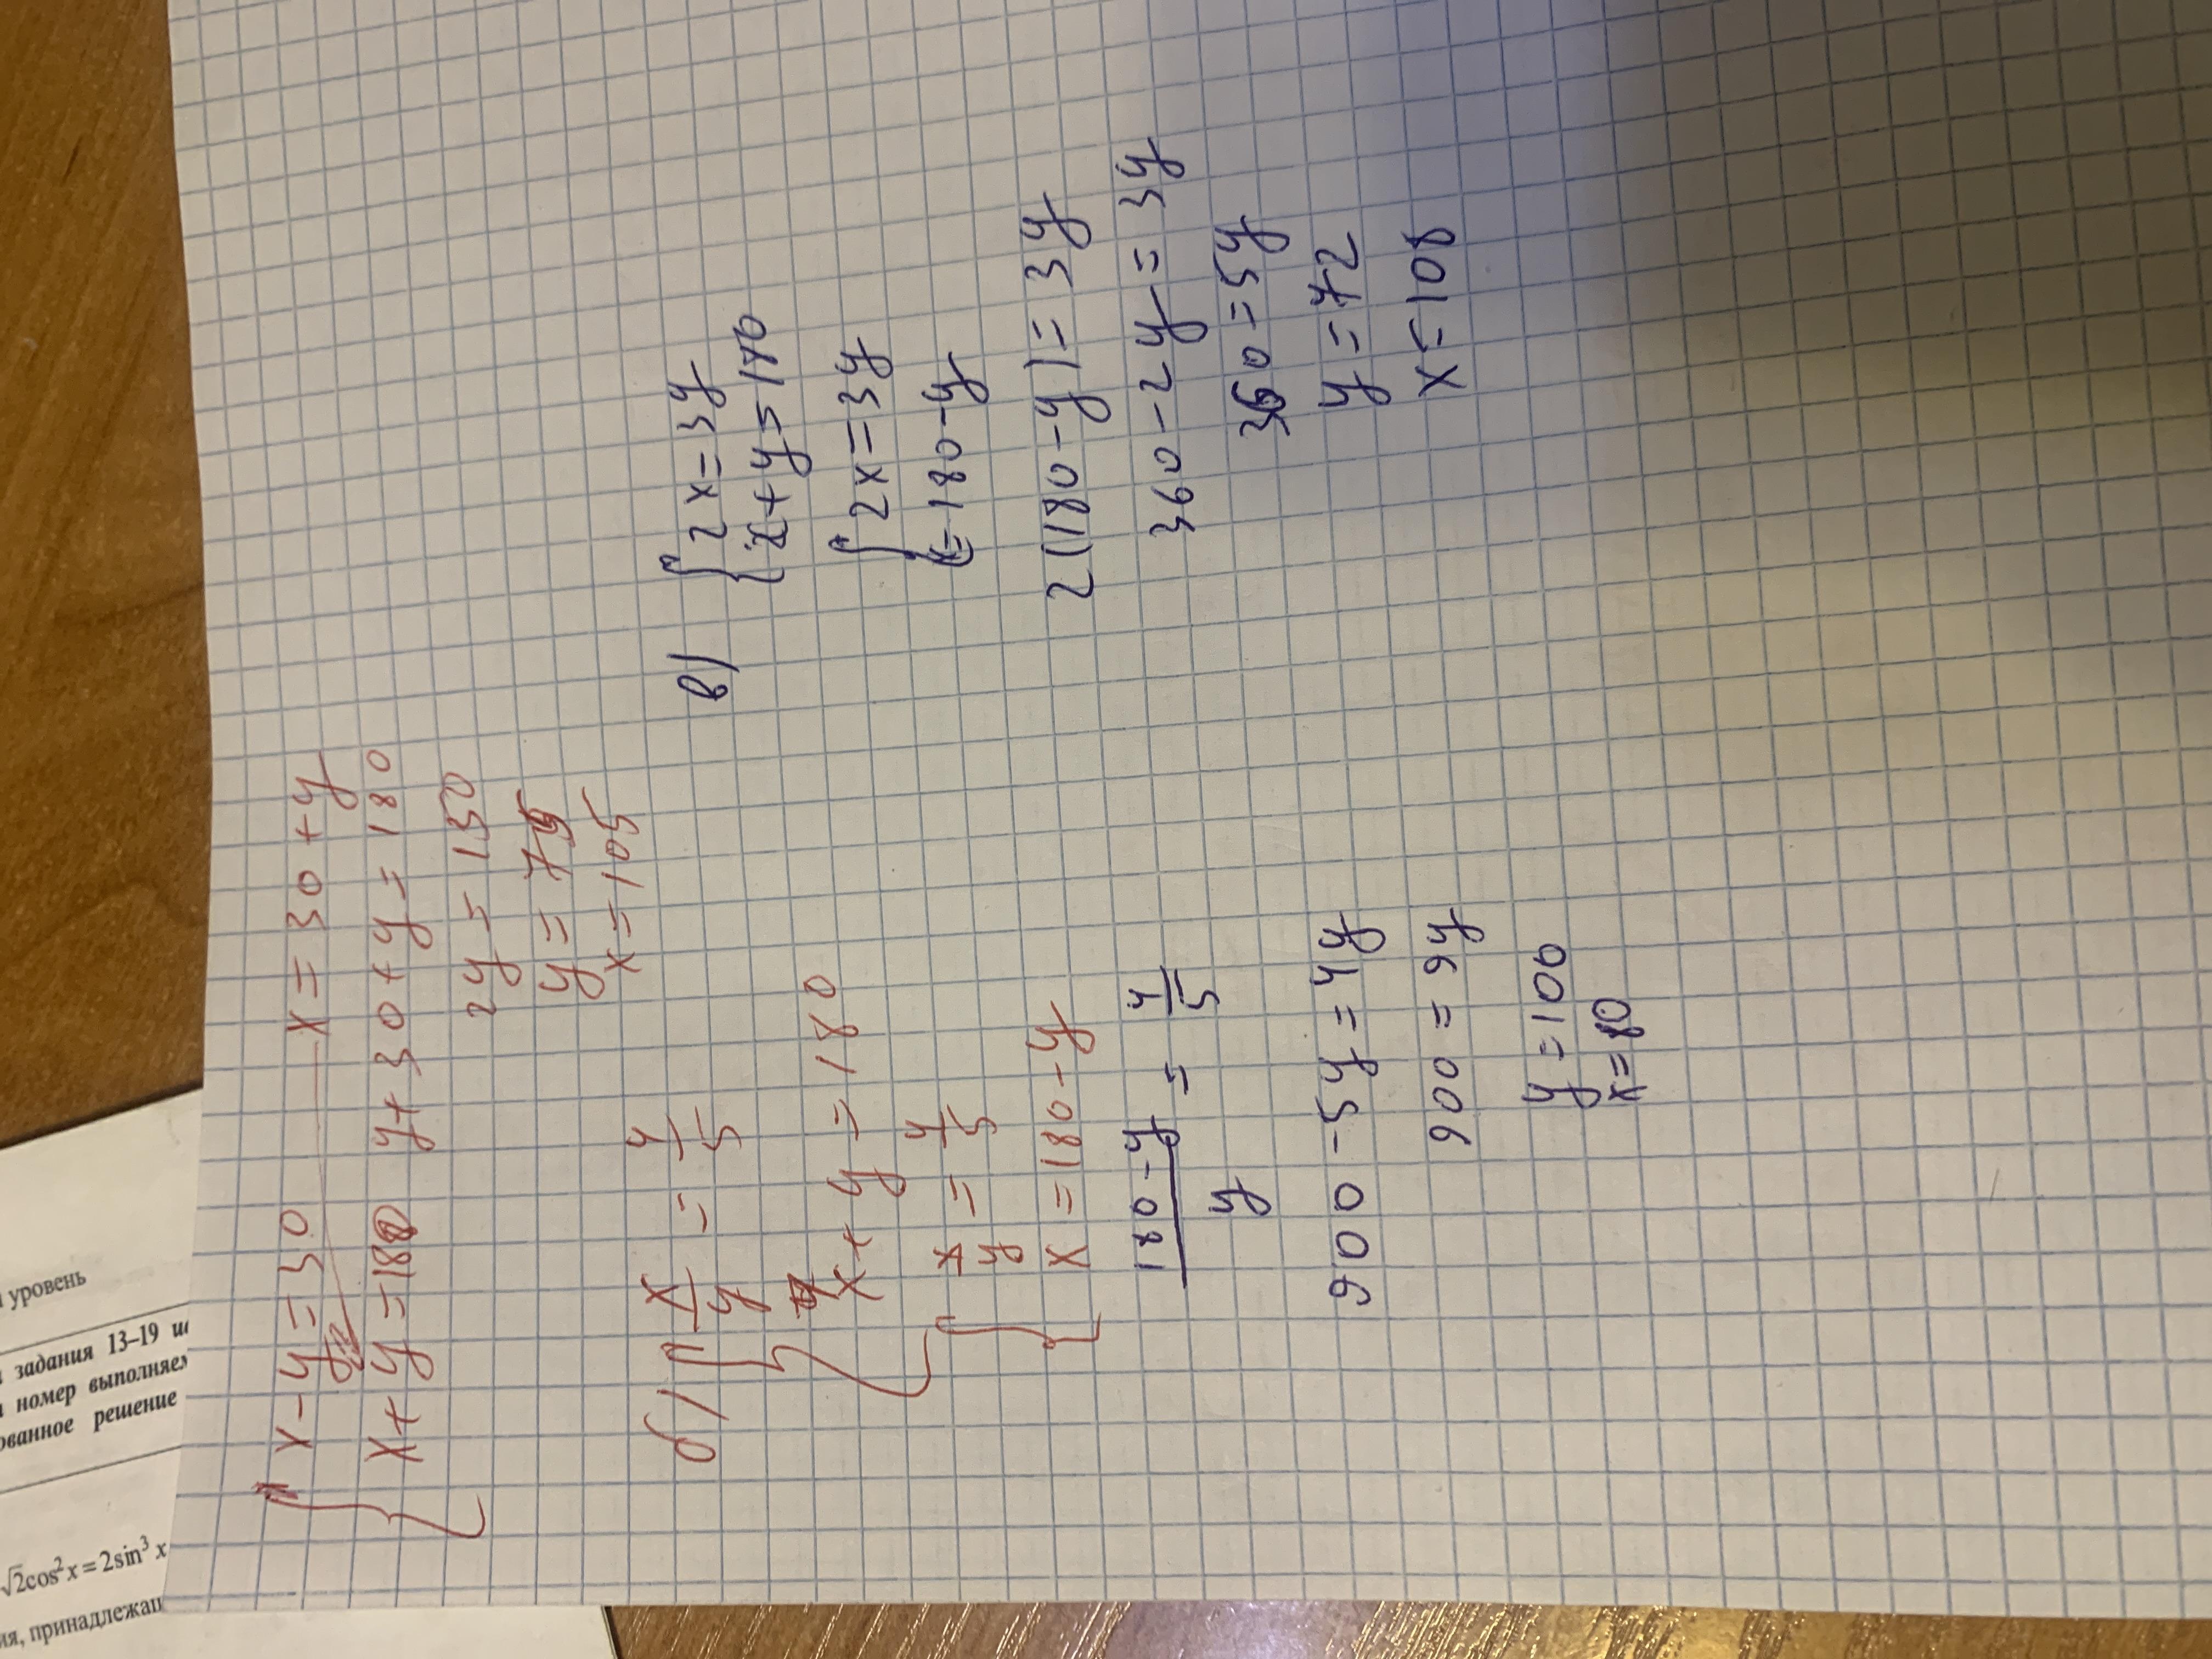 x-y=30 x=30+y
x+y=180 y+30+y=180
2y=150
y=75
x=105
б) x/y = 4/5
x+y=180
x/y = 4/5
x=180-y
180-y/y = 4/5
900-5y=4y
900=9y
y=100
x=80
в) 2x=3y
x+y=180
2x=3y
x=180-y
2(180-y)=3y
360-2y=3y
360=5y
y=72
x=108
уровень
задания 13–19
номер выполняем
ованное решение
√2cos²x=2sin³x
ия, принадлежащ